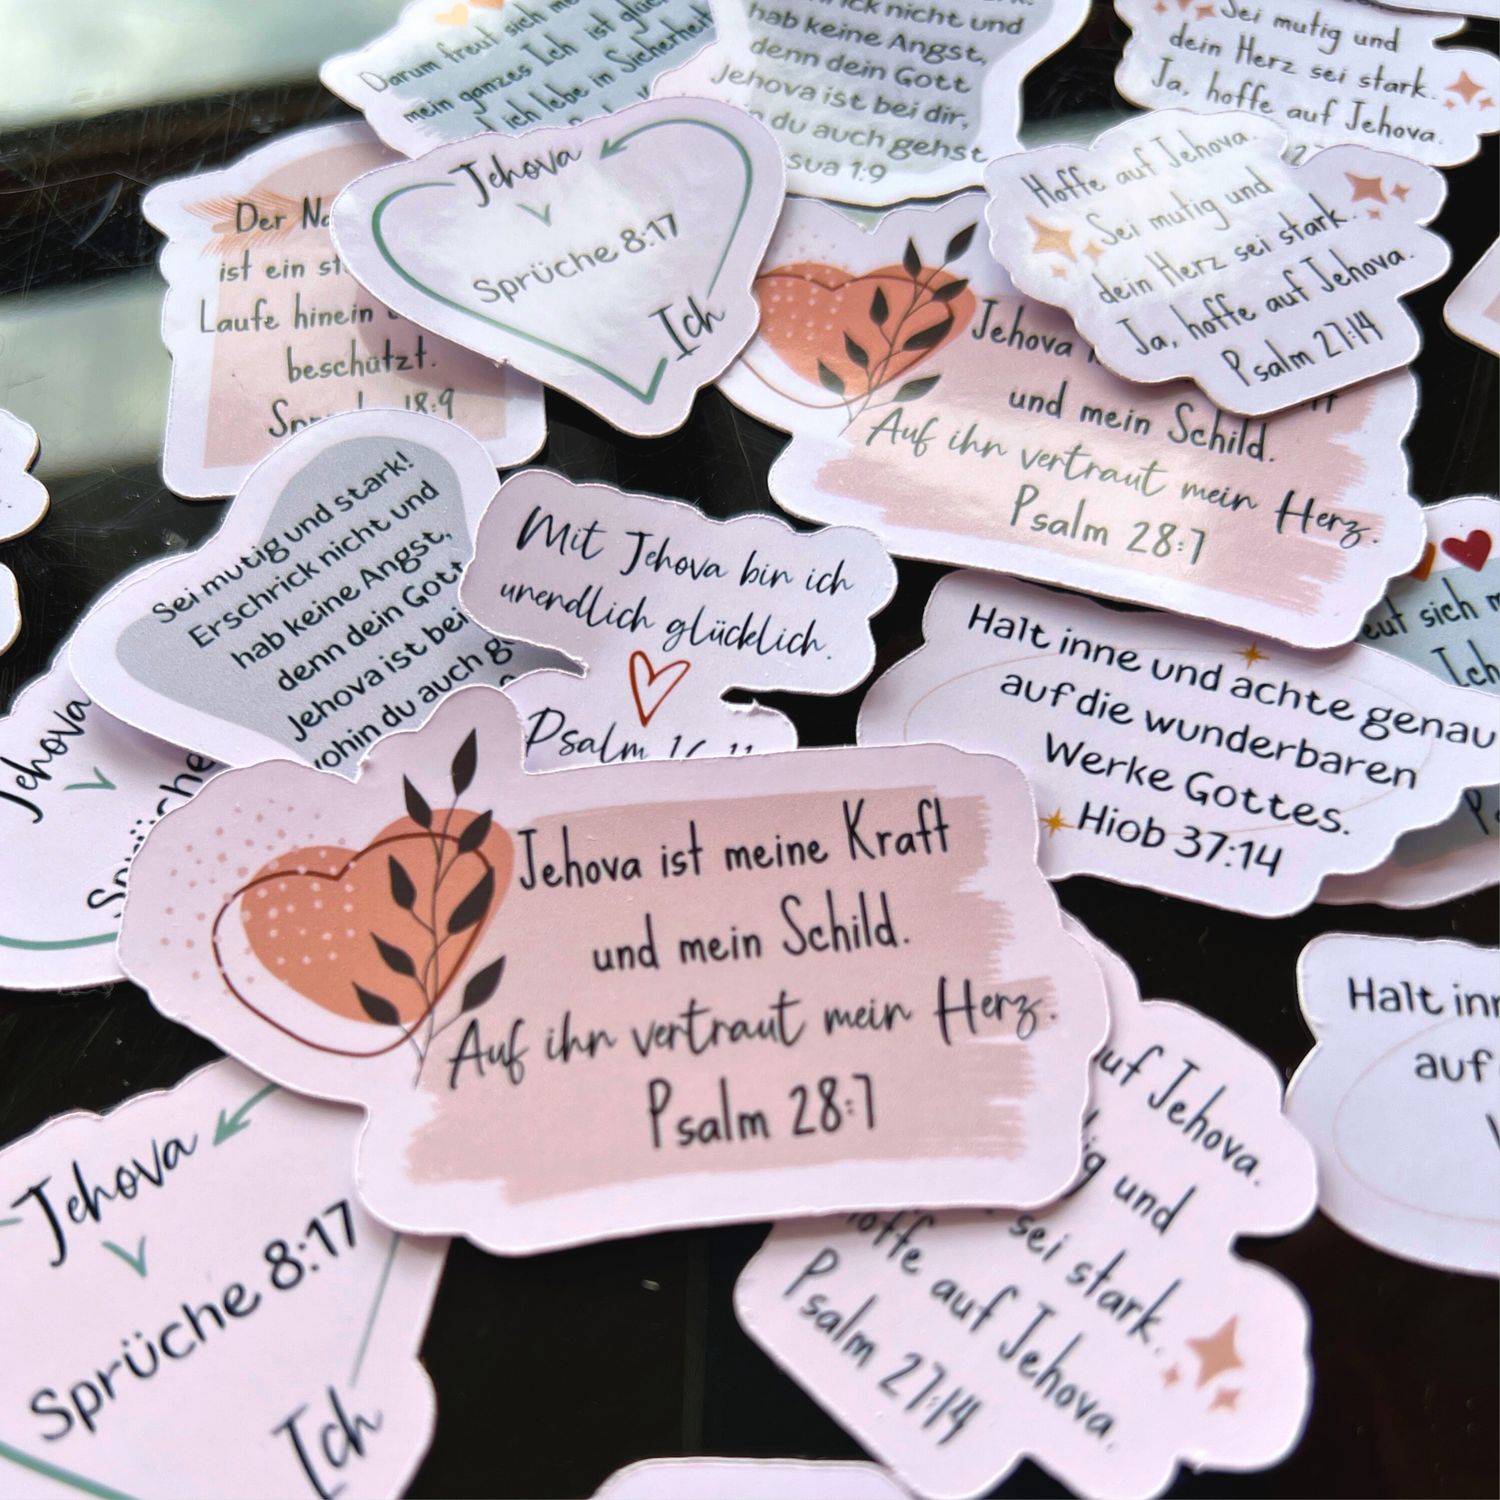 Darum freut sich
mein ganzes Ich ist
ich lebe in Sicherheit
nicht und
hab keine Angst,
denn dein Gott
Jehova ist bei dir,
du auch gehst
1:9
Sei mutig und
dein Herz sei stark.
Ja, hoffe auf Jehova.
Der
ist ein
Laufe hinein
beschützt.
18:9
Jehova
Sprüche 8:17
Ich
Hoffe auf Jehova.
Sei mutig und
dein Herz sei stark.
Ja, hoffe auf Jehova.
Psalm 27:14
Jehova
und mein Schild.
Auf ihn vertraut mein Herz.
Psalm 28:7
Sei mutig und stark!
Erschrick nicht und
hab keine Angst,
denn dein Gott
Jehova ist bei
wohin du auch
Mit Jehova bin ich
unendlich glücklich.
Psalm
Halt inne und achte genau
auf die wunderbaren
Werke Gottes.
Hiob 37:14
sich
Ich
Jehova
Jehova ist meine Kraft
und mein Schild.
Auf ihn vertraut mein Herz.
Psalm 28:7
Jehova
Sprüche 8:17
Ich
auf Jehova.
und
sei stark.
hoffe auf Jehova.
Psalm 27:14
Halt
auf